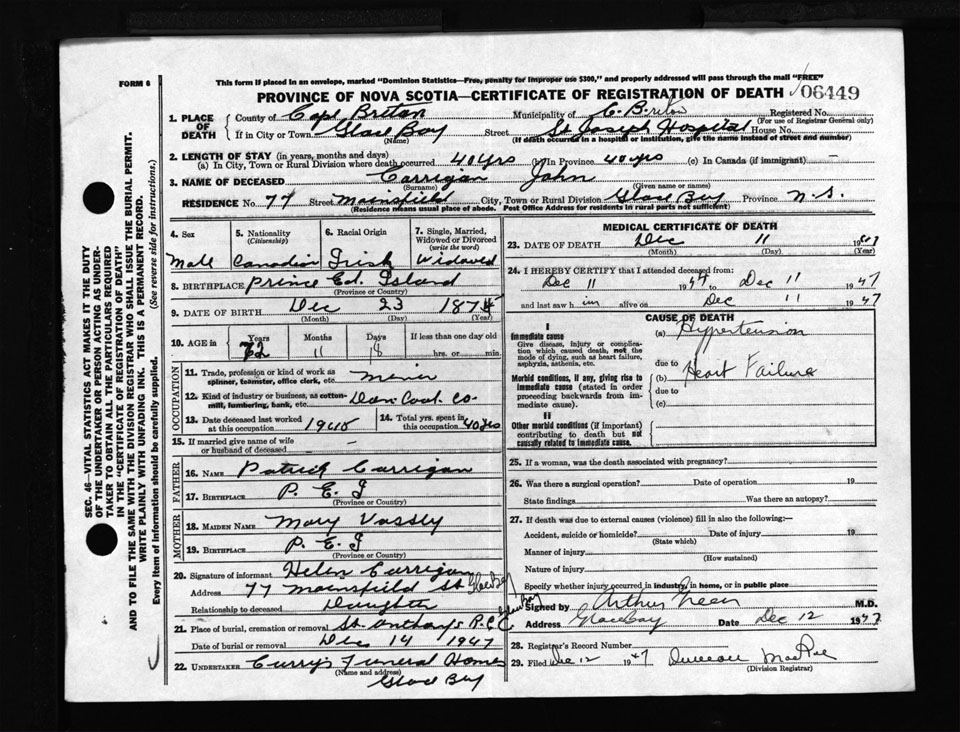 FORM 6
This form if placed in an envelope, marked "Dominion Statistics—Free, penalty for improper use $300," and properly addressed will pass through the mail "FREE"
PROVINCE OF NOVA SCOTIA—CERTIFICATE OF REGISTRATION OF DEATH 06449
1. PLACE OF DEATH County of Cape Breton Municipality of C. Breton Registered No.
(For use of Registrar General only)
If in City or Town Glace Bay Street St Joseph Hospital House No.
(Name) (If death occurred in a hospital or institution, give the name instead of street and number)
2. LENGTH OF STAY (in years, months and days)
(a) In City, Town or Rural Division where death occurred 40 yrs (b) In Province 40 yrs (c) In Canada (if immigrant) —
3. NAME OF DECEASED Carrigan John
(Surname) (Given name or names)
RESIDENCE No. 77 Street Mainsfield City, Town or Rural Division Glace Bay Province N.S.
(Residence means usual place of abode. Post Office Address for residents in rural parts not sufficient)
4. Sex 5. Nationality (Citizenship) 6. Racial Origin 7. Single, Married, Widowed or Divorced (write the word)
Male Canadian Irish Widowed
8. BIRTHPLACE Prince Ed. Island
(Province or Country)
9. DATE OF BIRTH Dec 23 187
(Month) (Day) (Year)
10. AGE in Years Months Days If less than one day old
72 11 18 hrs. or min.
OCCUPATION
11. Trade, profession or kind of work as spinner, teamster, office clerk, etc. Miner
12. Kind of industry or business, as cotton-mill, lumbering, bank, etc. Dom Coal Co.
13. Date deceased last worked at this occupation 1940 14. Total yrs. spent in this occupation 40 yrs
15. If married give name of wife or husband of deceased —
FATHER
16. NAME Patrick Carrigan
17. BIRTHPLACE P. E. I
(Province or Country)
MOTHER
18. MAIDEN NAME Mary
19. BIRTHPLACE P. E. I
(Province or Country)
20. Signature of informant Helen Carrigan
Address 77 Mainsfield St Glace Bay
Relationship to deceased Daughter
21. Place of burial, cremation or removal St Anthonys R.C.C. Glace Bay
Date of burial or removal Dec 14 1947
22. UNDERTAKER Curry's Funeral Homes
(Name and address)
Glace Bay
MEDICAL CERTIFICATE OF DEATH
23. DATE OF DEATH Dec 11 1947
(Month) (Day) (Year)
24. I HEREBY CERTIFY that I attended deceased from:
Dec 11 19 to Dec 11 1947
and last saw him alive on Dec 11 1947
CAUSE OF DEATH
I
Immediate cause
Give disease, injury or complication which caused death, not the mode of dying, such as heart failure, asphyxia, asthenia, etc.
(a) Hypertension
due to
Morbid conditions, if any, giving rise to immediate cause (stated in order proceeding backwards from immediate cause).
(b) Heart Failure
due to
(c)
II
Other morbid conditions (if important) contributing to death but not causally related to immediate cause.
25. If a woman, was the death associated with pregnancy?
26. Was there a surgical operation? Date of operation 19
State findings Was there an autopsy?
27. If death was due to external causes (violence) fill in also the following:—
Accident, suicide or homicide? Date of injury 19
(State which)
Manner of injury
(How sustained)
Nature of injury
Specify whether injury occurred in industry, in home, or in public place
Signed by Arthur M.D.
Address Glace Bay Date Dec 12 1947
28. Registrar's Record Number
29. Filed Dec 12 1947 Duncan MacRae
(Division Registrar)
SEC. 46—VITAL STATISTICS ACT MAKES IT THE DUTY
OF THE UNDERTAKER OR PERSON ACTING AS UNDER-
TAKER TO OBTAIN ALL THE PARTICULARS REQUIRED
IN THE "CERTIFICATE OF REGISTRATION OF DEATH"
AND TO FILE THE SAME WITH THE DIVISION REGISTRAR WHO SHALL ISSUE THE BURIAL PERMIT.
WRITE PLAINLY WITH UNFADING INK. THIS IS A PERMANENT RECORD.
Every item of information should be carefully supplied. (See reverse side for instructions.)